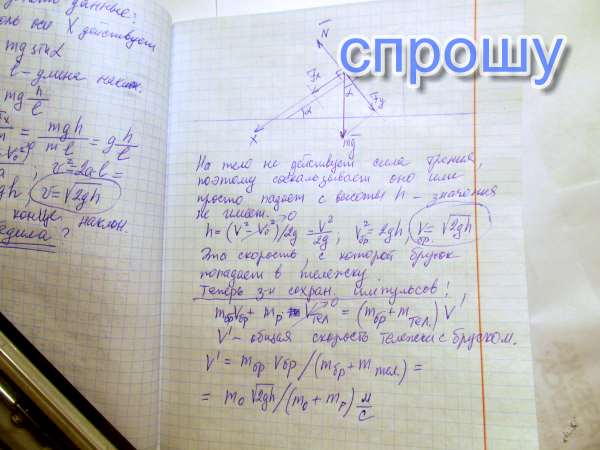 mg sinα
mg h/l
= mgh/ml = g h/l
v² = 2al =
v = √2gh
спрошу
N
Fx
Fy
α
α
X
mg
На тело не действует сила трения,
поэтому соскальзывает оно или
просто падает с высоты h – значения
не имеет.
h = (V² - V₀²)/2g = V²/2g ; V²бр = 2gh, Vбр = √2gh
Эта скорость, с которой брусок
попадает в тележку.
Теперь з-н сохран. импульсов!
mбр Vбр + mр Vтел = (mбр + mтел.) V'
V' – общая скорость тележки с бруском.
V' = mбр Vбр / (mбр + mтел.) =
= m₀ √2gh / (m₀ + mр) м/с